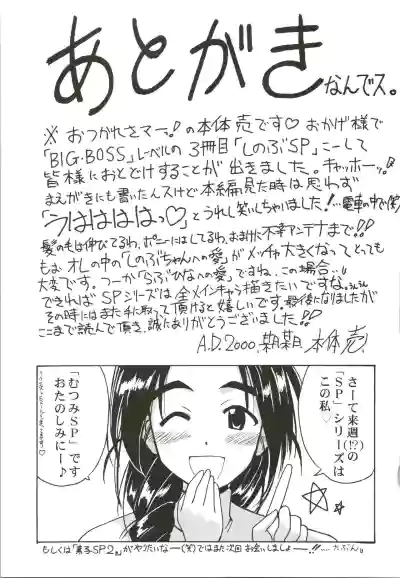 あとがき
なんでス。
※おつかれさマー。!の本体売です♡おかげ様で
「BIG・BOSS」レーベルの3冊目「しのぶSP」こーして
皆様におとどけすることが出きました。キャッホーッ!!
まえがきにも書いたんスけど本編見た時は思わず
「うはははっ♡」とうれし笑いしちゃいました!…電車の中で(笑)
髪の毛は伸びてるわ、ポニーにはしてるわ、おまけに不幸アンテナまで!!
もぉ、オレの中の「しのぶちゃんへの愛」がメッチャ大きくなってとっても
大変です。つーか「らぶひなへの愛」ですね、この場合…。
できればSPシリーズは全メインキャラ描きたいですな。
その時にはまた手に取って頂けると嬉しいです。最後になりましたが
ここまで読んで頂き、誠にありがとうございました!!
A.D.2000. 本体売
さーて来週(!?)の
「SP」シリーズは
この私♡
「むつみSP」です
おたのしみにー♪
もしくは「素子SP2」がやりたいなー(笑)ではまた次回お会いしましょー!!…たぶん